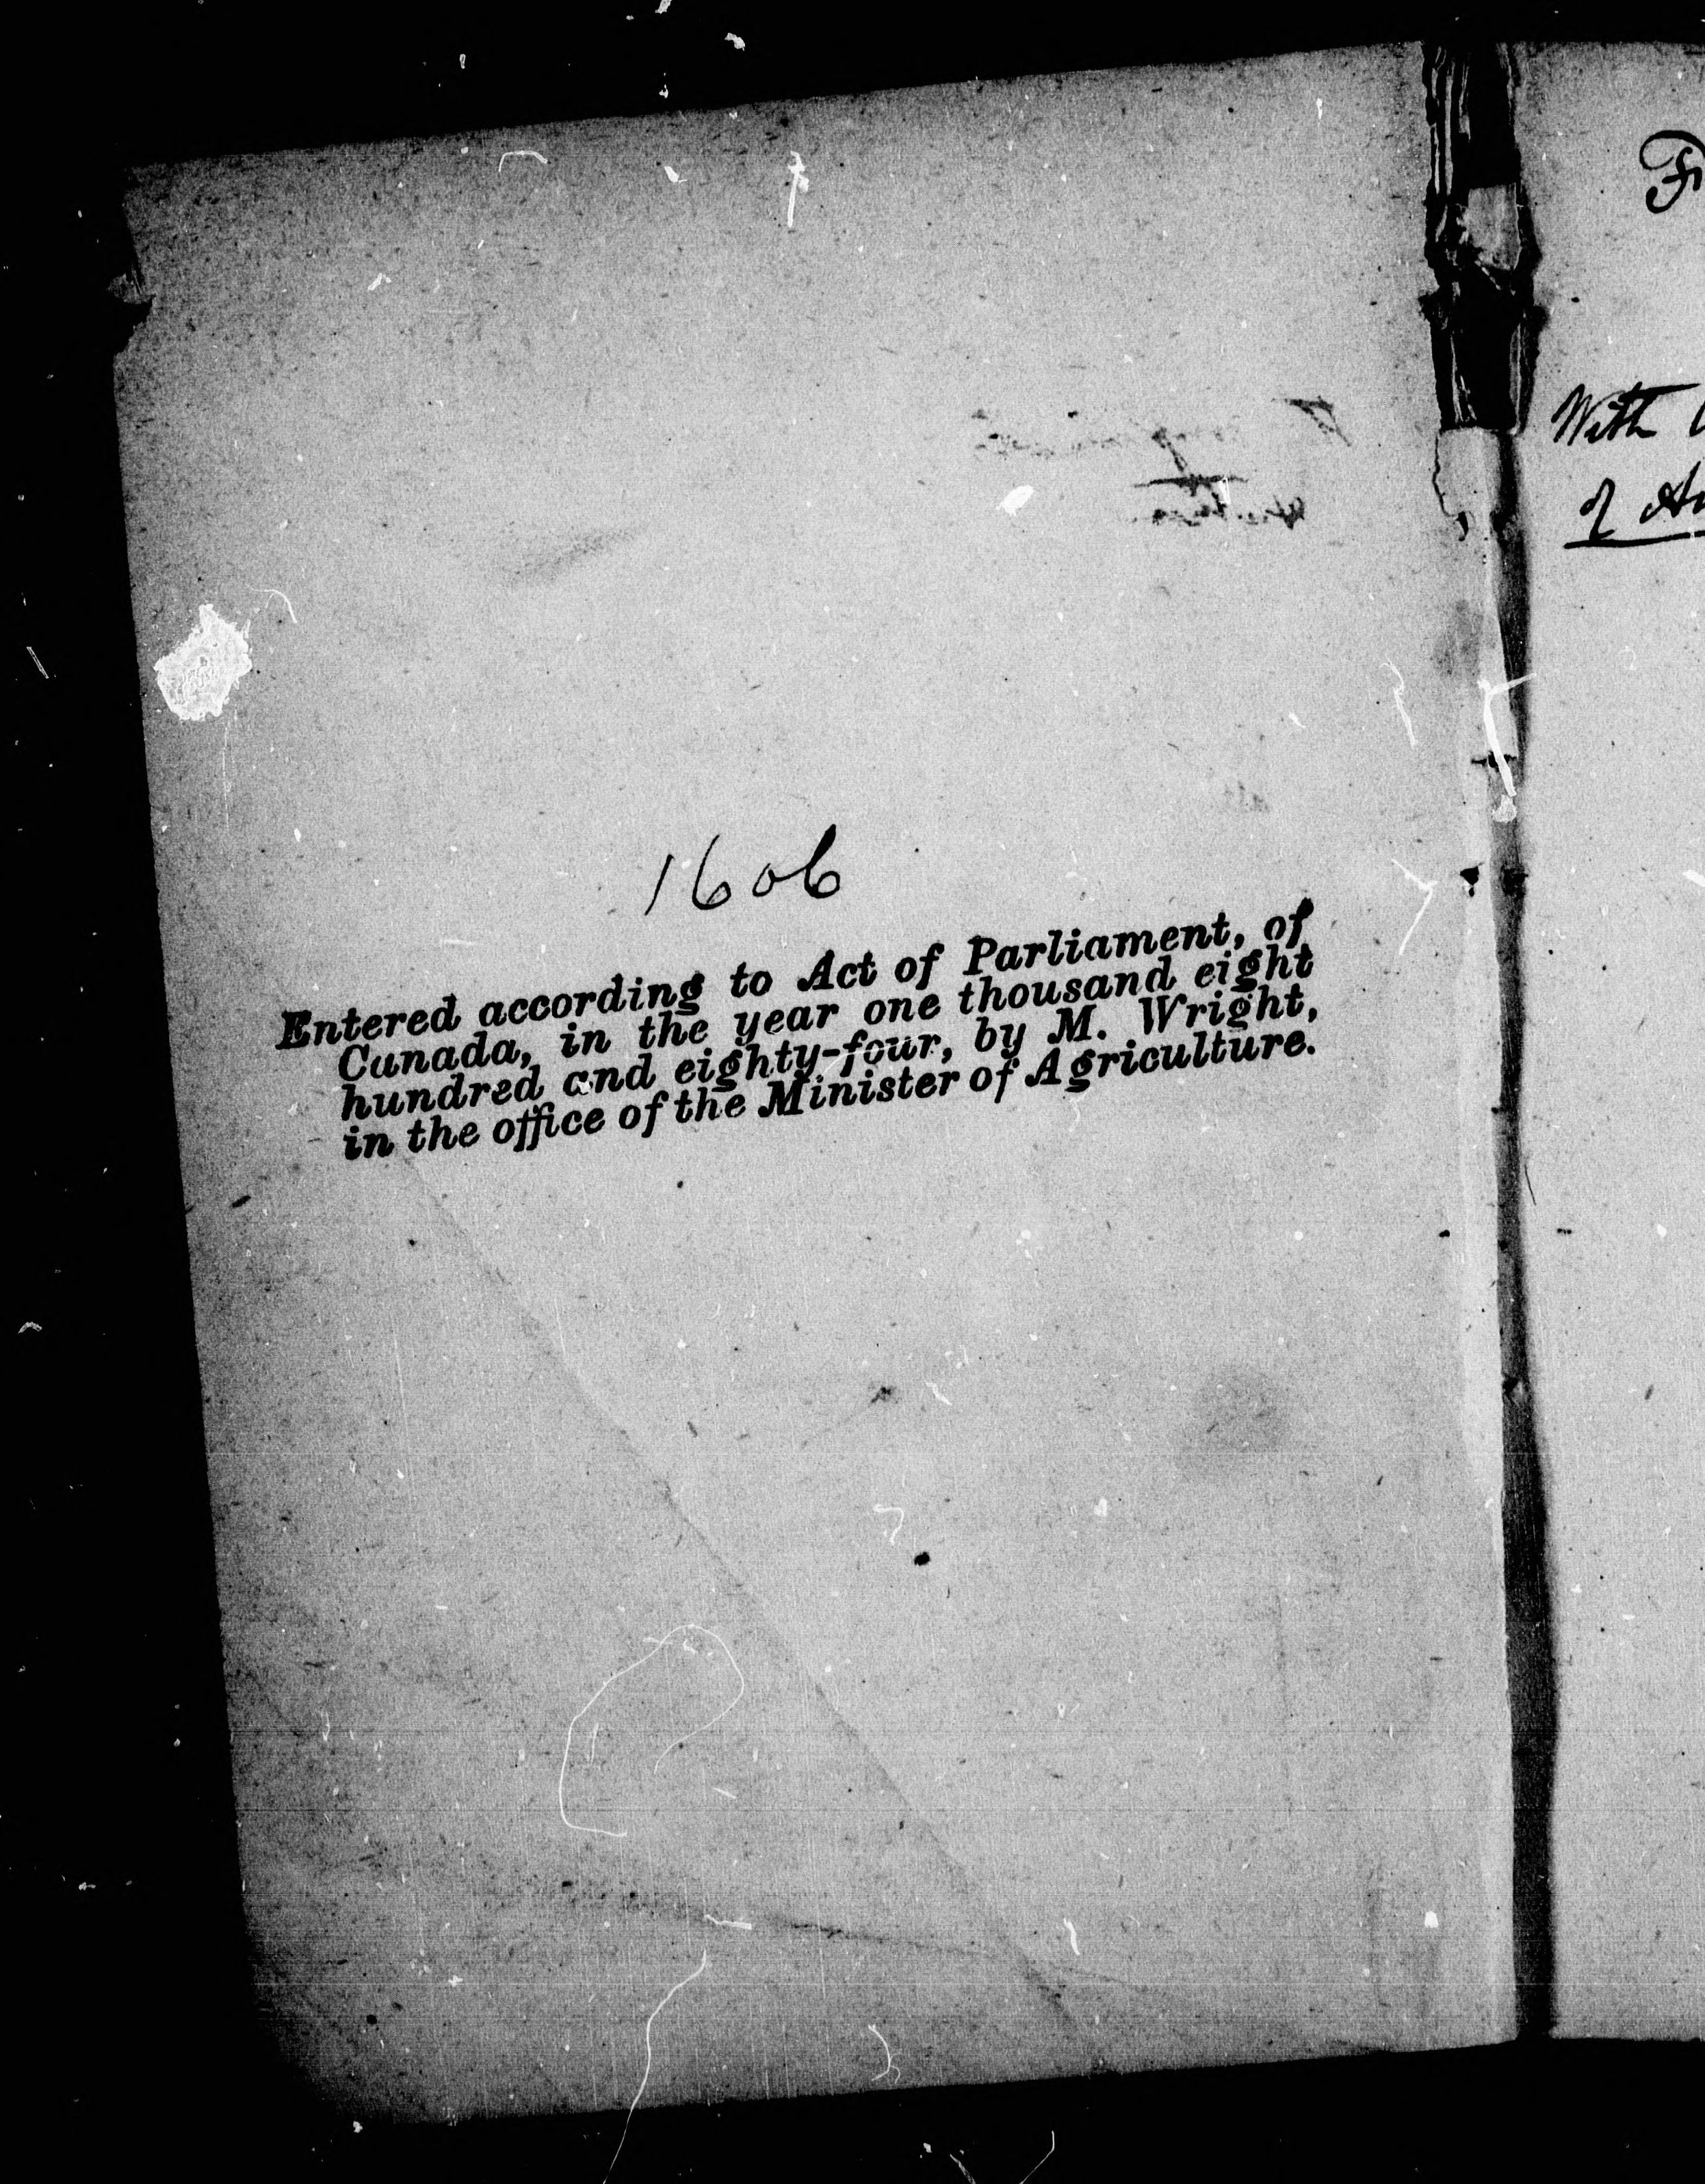 1606
Entered according to Act of Parliament, of
Canada, in the year one thousand eight
hundred and eighty-four, by M. Wright,
in the office of the Minister of Agriculture.
With
of